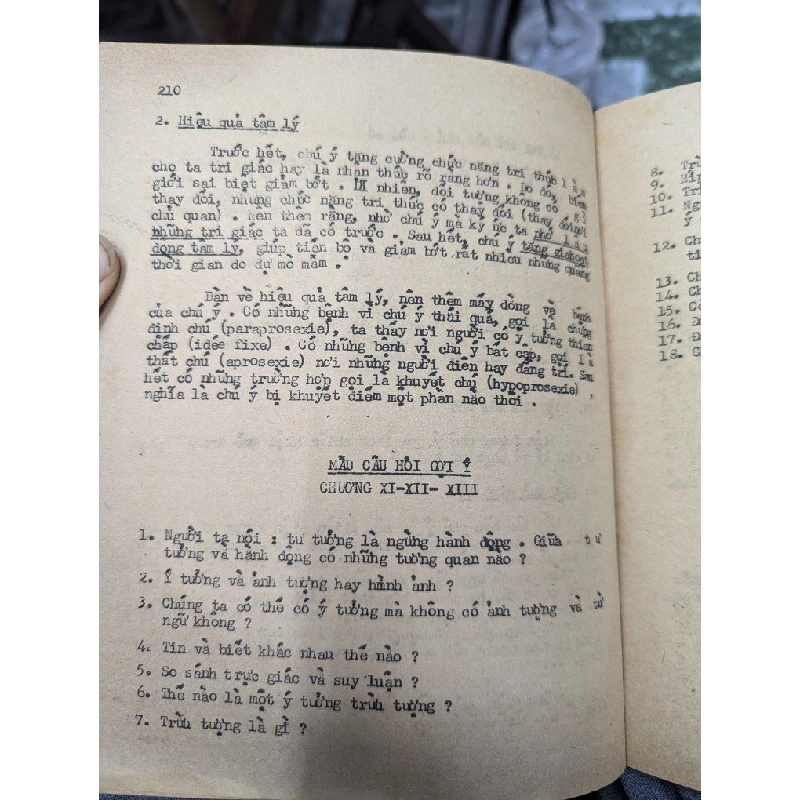 210
2. Hiệu quả tâm lý
Trước hết, chú ý tăng cường chức năng tri thức làm
cho ta tri giác hay là nhận thức rõ ràng hơn . Do đó, biên
giới sai biệt giảm bớt . Dĩ nhiên, đối tượng không có gì
thay đổi, nhưng chức năng tri thức có thay đổi (thay đổi
chủ quan) . Nên thêm rằng, nhờ chú ý mà ký ức ta nhớ lâu
những tri giác ta đã có trước . Sau hết, chú ý tăng gia hoạt
động tâm lý, giúp tiến bộ và giảm bớt rất nhiều những quãng
thời gian do dự mò mẫm .
Bàn về hiệu quả tâm lý, nên thêm mấy dòng về bệnh
của chú ý . Có những bệnh vì chú ý thái quá, gọi là chứng
định chú (paraprosexie), ta thấy nơi người có ý tưởng thiên
chấp (idée fixe) . Có những bệnh vì chú ý bất cập, gọi là
thất chú (aprosexie) nơi những người điên hay đãng trí. Sau
hết có những trường hợp gọi là khuyết chú (hypoprosexie) ,
nghĩa là chú ý bị khuyết điểm một phần nào thôi .
MẪU CÂU HỎI GỢI Ý
CHƯƠNG XI-XII- XIII
1. Người ta nói : tư tưởng là ngừng hành động . Giữa tư
tưởng và hành động có những tương quan nào ?
2. Ý tưởng và ảnh tượng hay hình ảnh ?
3. Chúng ta có thể có ý tưởng mà không có ảnh tượng và từ
ngữ không ?
4. Tin và biết khác nhau thế nào ?
5. So sánh trực giác và suy luận ?
6. Thế nào là một ý tưởng trừu tượng ?
7. Trừu tượng là gì ?
8. Trừ
9.
10. Tri
11. Ng
ý
12. Ch
ti
13. Ch
14. Ch
15. Có
16.
17.
18. C